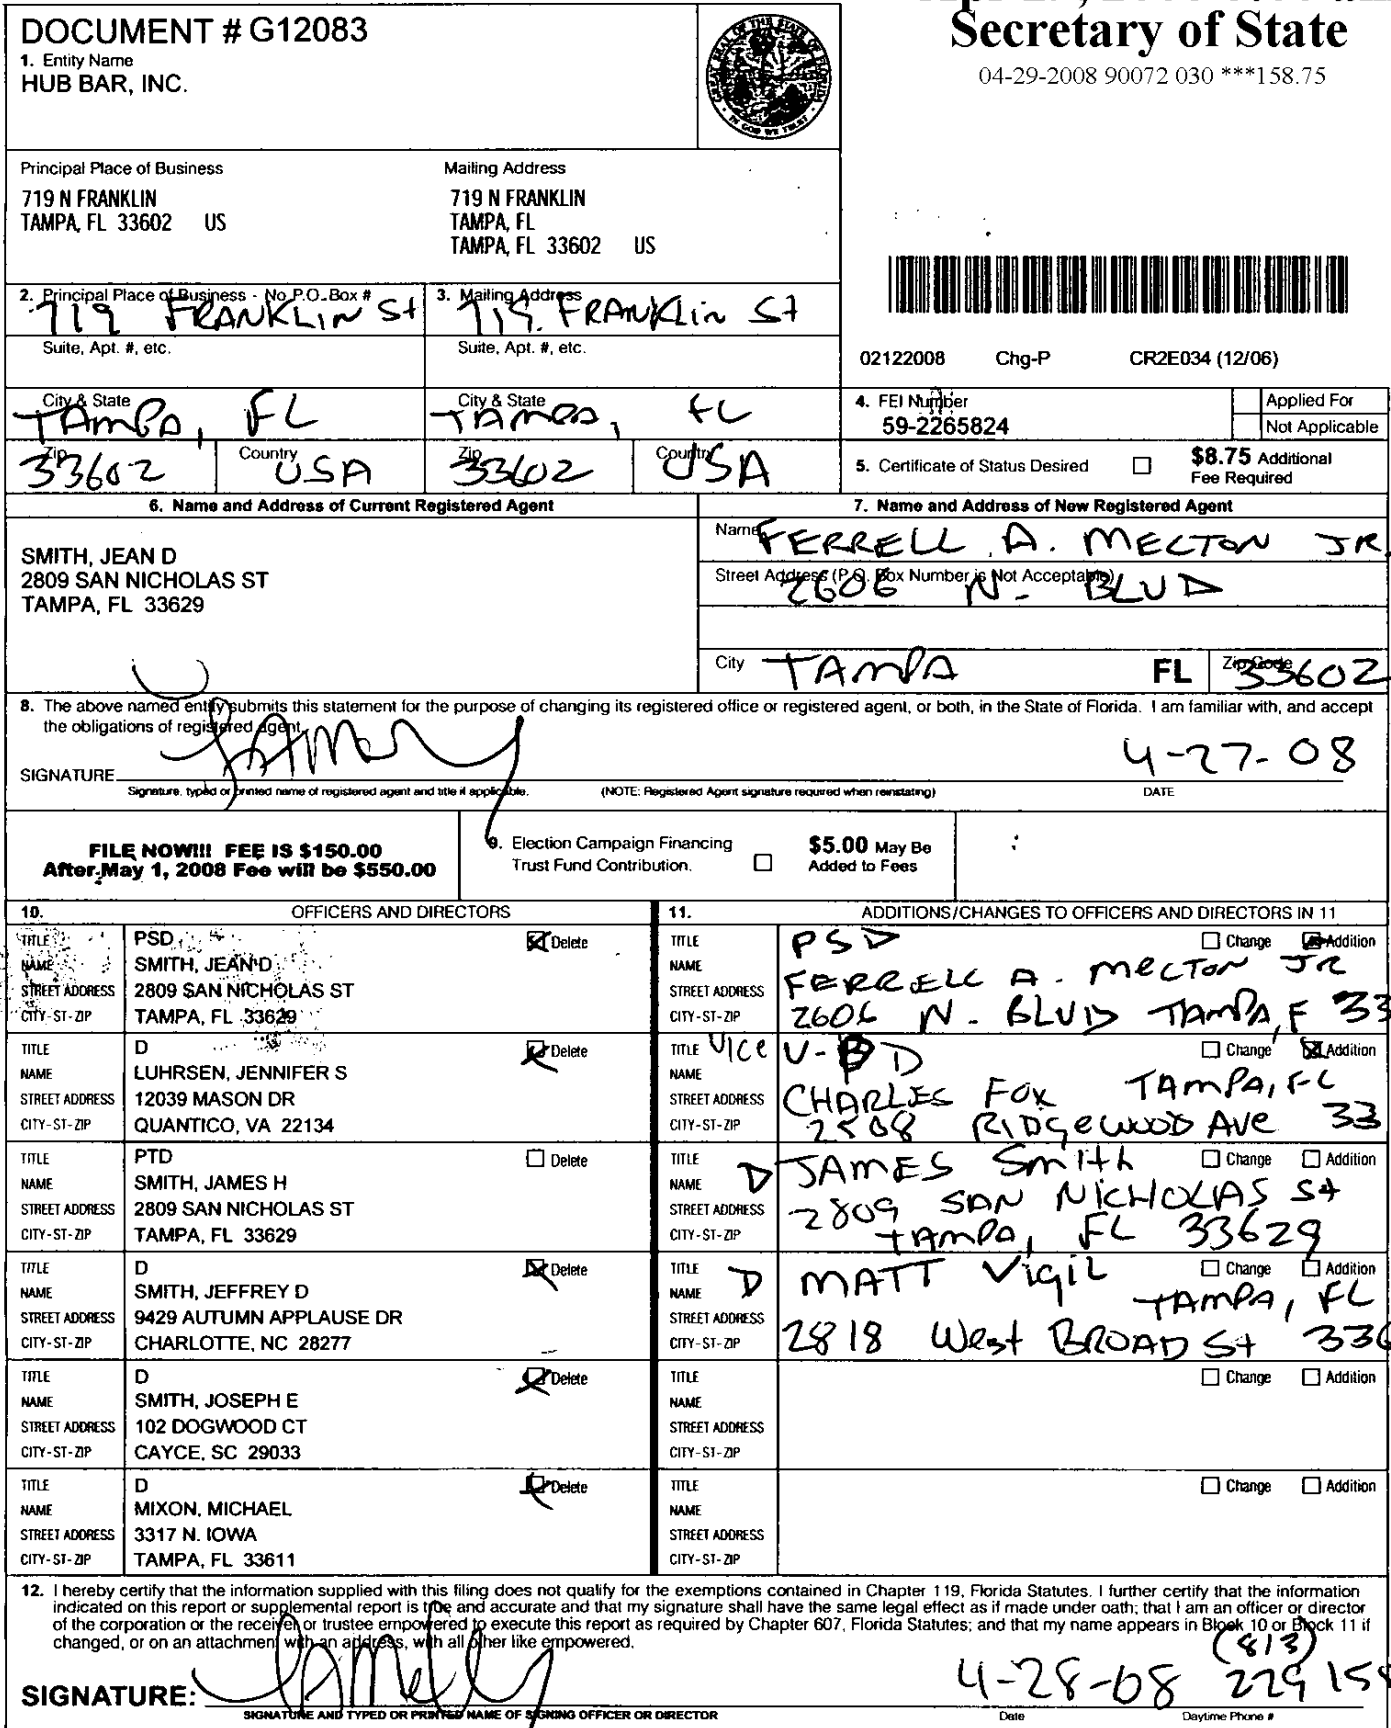 DOCUMENT # G12083
1. Entity Name
HUB BAR, INC.
Secretary of State
04-29-2008 90072 030 ***158.75
Principal Place of Business
719 N FRANKLIN
TAMPA, FL 33602 US
Mailing Address
719 N FRANKLIN
TAMPA, FL
TAMPA, FL 33602 US
2. Principal Place of Business - No P.O. Box #
719 FRANKLIN St
3. Mailing Address
719 FRANKLIN St
Suite, Apt. #, etc.
Suite, Apt. #, etc.
02122008 Chg-P CR2E034 (12/06)
City & State
TAMPA, FL
City & State
TAMPA, FL
4. FEI Number
59-2265824
Applied For
Not Applicable
Zip
33602
Country
USA
Zip
33602
Country
USA
5. Certificate of Status Desired
$8.75 Additional
Fee Required
6. Name and Address of Current Registered Agent
SMITH, JEAN D
2809 SAN NICHOLAS ST
TAMPA, FL 33629
7. Name and Address of New Registered Agent
Name
FERRELL A. MECTON JR.
Street Address (P.O. Box Number is Not Acceptable)
2606 N. BLVD
City TAMPA FL Zip Code 33602
8. The above named entity submits this statement for the purpose of changing its registered office or registered agent, or both, in the State of Florida. I am familiar with, and accept
the obligations of registered agent.
SIGNATURE 4-27-08
Signature, typed or printed name of registered agent and title if applicable. (NOTE: Registered Agent signature required when reinstating) DATE
FILE NOW!!! FEE IS $150.00
After May 1, 2008 Fee will be $550.00
9. Election Campaign Financing
Trust Fund Contribution.
$5.00 May Be
Added to Fees
10. OFFICERS AND DIRECTORS
TITLE PSD Delete
NAME SMITH, JEAN D
STREET ADDRESS 2809 SAN NICHOLAS ST
CITY-ST-ZIP TAMPA, FL 33629
TITLE D Delete
NAME LUHRSEN, JENNIFER S
STREET ADDRESS 12039 MASON DR
CITY-ST-ZIP QUANTICO, VA 22134
TITLE PTD Delete
NAME SMITH, JAMES H
STREET ADDRESS 2809 SAN NICHOLAS ST
CITY-ST-ZIP TAMPA, FL 33629
TITLE D Delete
NAME SMITH, JEFFREY D
STREET ADDRESS 9429 AUTUMN APPLAUSE DR
CITY-ST-ZIP CHARLOTTE, NC 28277
TITLE D Delete
NAME SMITH, JOSEPH E
STREET ADDRESS 102 DOGWOOD CT
CITY-ST-ZIP CAYCE, SC 29033
TITLE D Delete
NAME MIXON, MICHAEL
STREET ADDRESS 3317 N. IOWA
CITY-ST-ZIP TAMPA, FL 33611
11. ADDITIONS/CHANGES TO OFFICERS AND DIRECTORS IN 11
TITLE PSD Change Addition
NAME FERRELL A. MECTON JR
STREET ADDRESS
CITY-ST-ZIP 2606 N. BLVD TAMPA, F 33
TITLE VICE V- D Change Addition
NAME TAMPA, FL
STREET ADDRESS CHARLES FOX
CITY-ST-ZIP RIDGEWOOD AVE 33
TITLE JAMES Smith Change Addition
NAME D
STREET ADDRESS 2809 SAN NICHOLAS St
CITY-ST-ZIP TAMPA, FL 33629
TITLE MATT Vigil Change Addition
NAME D TAMPA, FL
STREET ADDRESS
CITY-ST-ZIP 2818 West BROAD St 336
TITLE Change Addition
NAME
STREET ADDRESS
CITY-ST-ZIP
TITLE Change Addition
NAME
STREET ADDRESS
CITY-ST-ZIP
12. I hereby certify that the information supplied with this filing does not qualify for the exemptions contained in Chapter 119, Florida Statutes. I further certify that the information
indicated on this report or supplemental report is true and accurate and that my signature shall have the same legal effect as if made under oath; that I am an officer or director
of the corporation or the receiver or trustee empowered to execute this report as required by Chapter 607, Florida Statutes; and that my name appears in Block 10 or Block 11 if
changed, or on an attachment with an address, with all other like empowered.
(813)
SIGNATURE: 4-28-08 229 15
SIGNATURE AND TYPED OR PRINTED NAME OF SIGNING OFFICER OR DIRECTOR Date Daytime Phone #